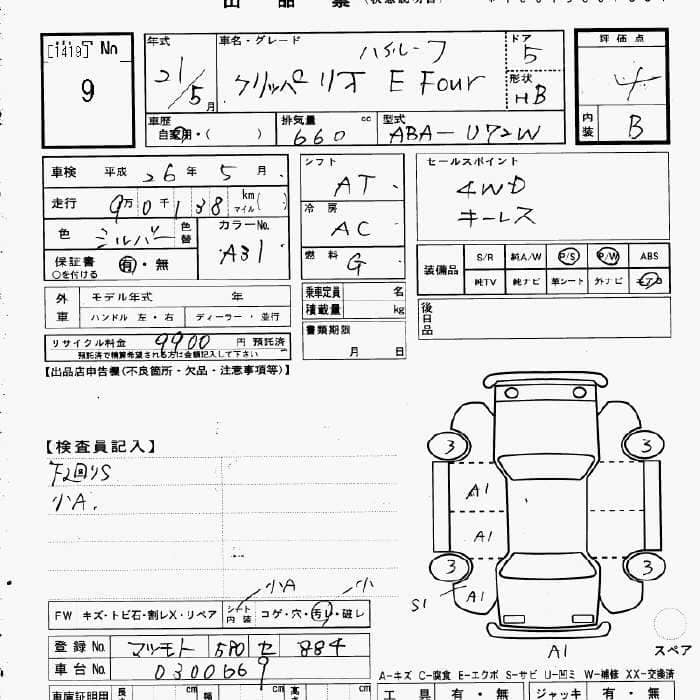 出 品 票 (状態説明書)
[1419] No
9
年式
21/5月
車名・グレード
ハイルーフ
クリッパーリオ E Four
ドア
5
形状
HB
評価点
4
内装
B
車歴
自家用・( )
排気量 cc
660
型式
ABA-U72W
車検 平成 26年 5月
走行 9万0千138 km マイル( )
色 シルバー 色替
カラーNo.
A31
保証書 有・無
○を付ける
シフト
AT
冷房
AC
燃料
G
セールスポイント
4WD
キーレス
装備品
S/R 純A/W P/S P/W ABS
純TV 純ナビ 革シート 外ナビ エアB
外車
モデル年式 年
ハンドル 左・右 ディーラー・並行
乗車定員 名
積載量 kg
後日品
リサイクル料金 9900 円 預託済
預託済で精算希望される方は金額記入して下さい
書類期限
月 日
【出品店申告欄(不良箇所・欠品・注意事項等)】
【検査員記入】
下回りS
小A.
3 3
A1
A1
3 3
A1
S1
A1
スペア
小A 小
FW キズ・トビ石・割レX・リペア シート内装 コゲ・穴・汚レ・破レ
登録No. マツモト 580 セ 884
車台No. 0300669
A-キズ C-腐食 E-エクボ S-サビ U-凹ミ W-補修 XX-交換済
車庫証明用 長 cm 幅 cm 高 cm
工具 有・無 ジャッキ 有・無